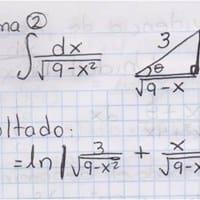 ma ②
∫ dx / √9-x²
3
θ
√9-x
ltado:
= ln | 3 / √9-x² + x / √9-x